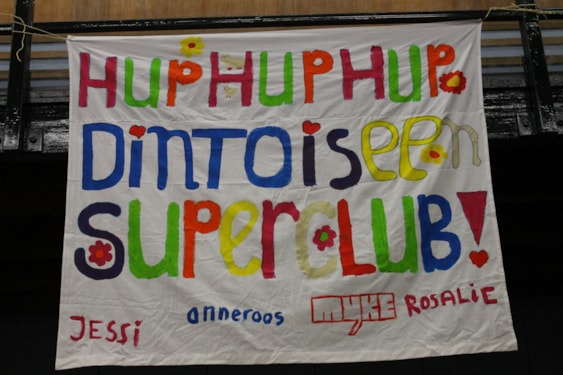 HUP HUP HUP.
DINTO is een
SUPERCLUB!
JESSI anneroos MYKE ROSALIE